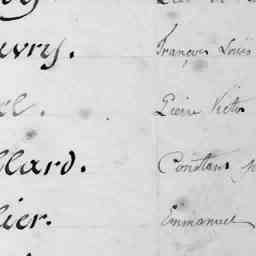 uvry. François Louis
el. Pierre Victor
llard. Constant
lier. Emmanuel